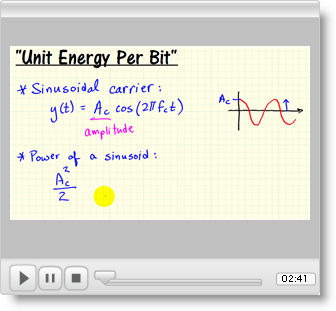 "Unit Energy Per Bit"
* Sinusoidal carrier:
y(t) = Ac cos(2πfct)
amplitude
Ac
* Power of a sinusoid:
Ac²
2
02:41